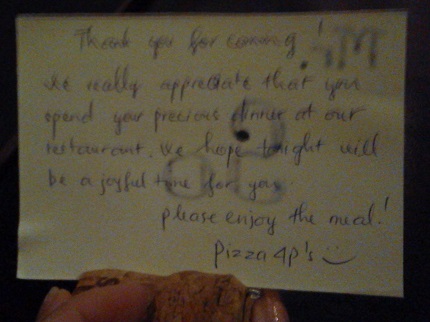 Thank you for coming!
We really appreciate that you
spend your precious dinner at our
restaurant. We hope tonight will
be a joyful time for you
please enjoy the meal!
Pizza 4P's